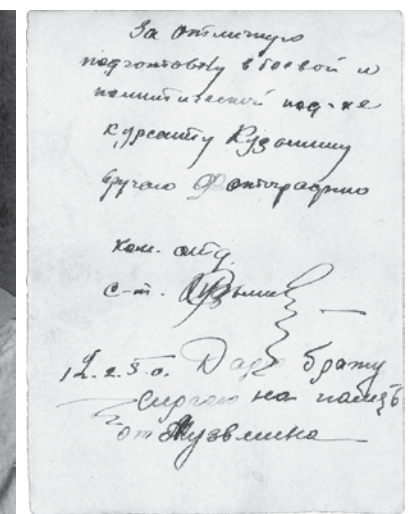 За отличную
подготовку в боевой и
политической под-ке
курсанту Кузьмину
вручаю Фотографию
Ком. отд.
с-т.
12.2.50. Даю брату
Сергею на память
от